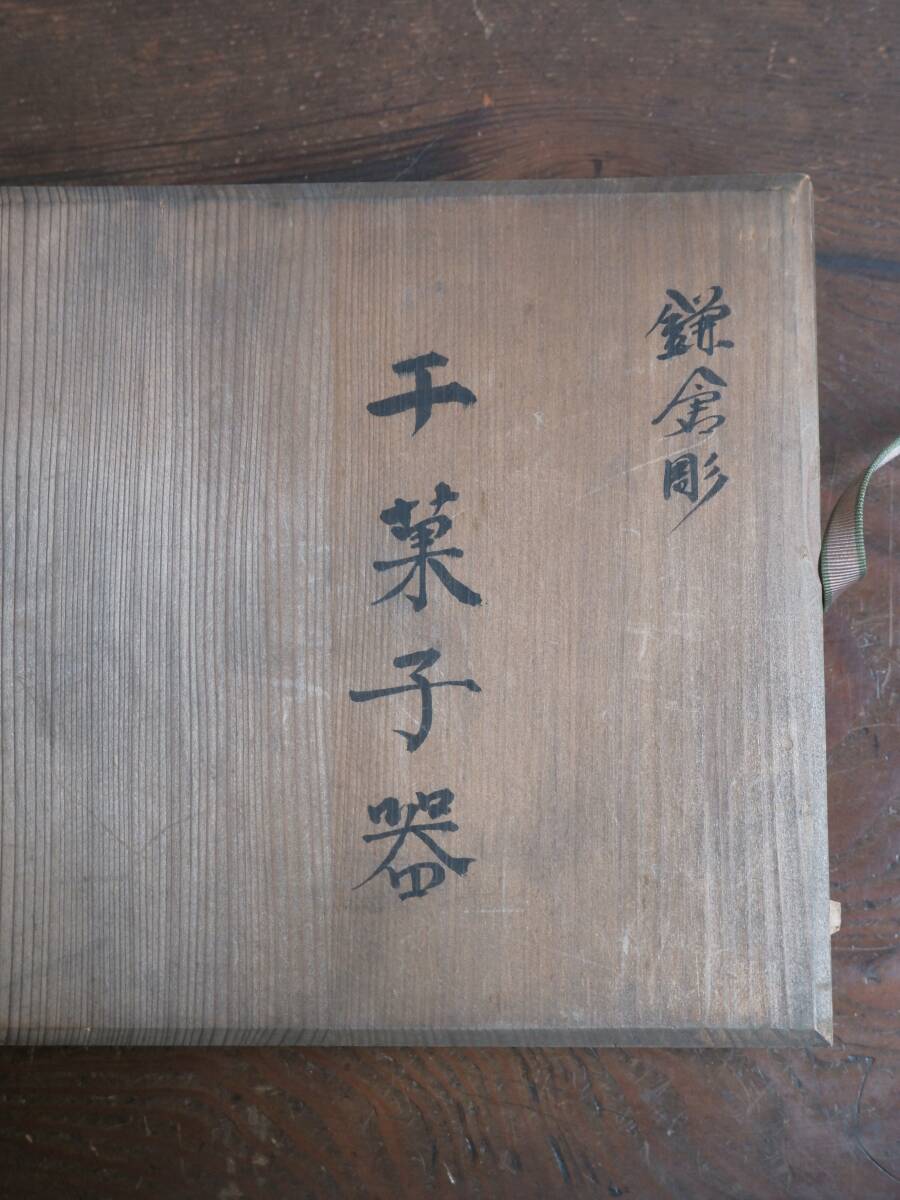 鎌倉彫
干菓子器